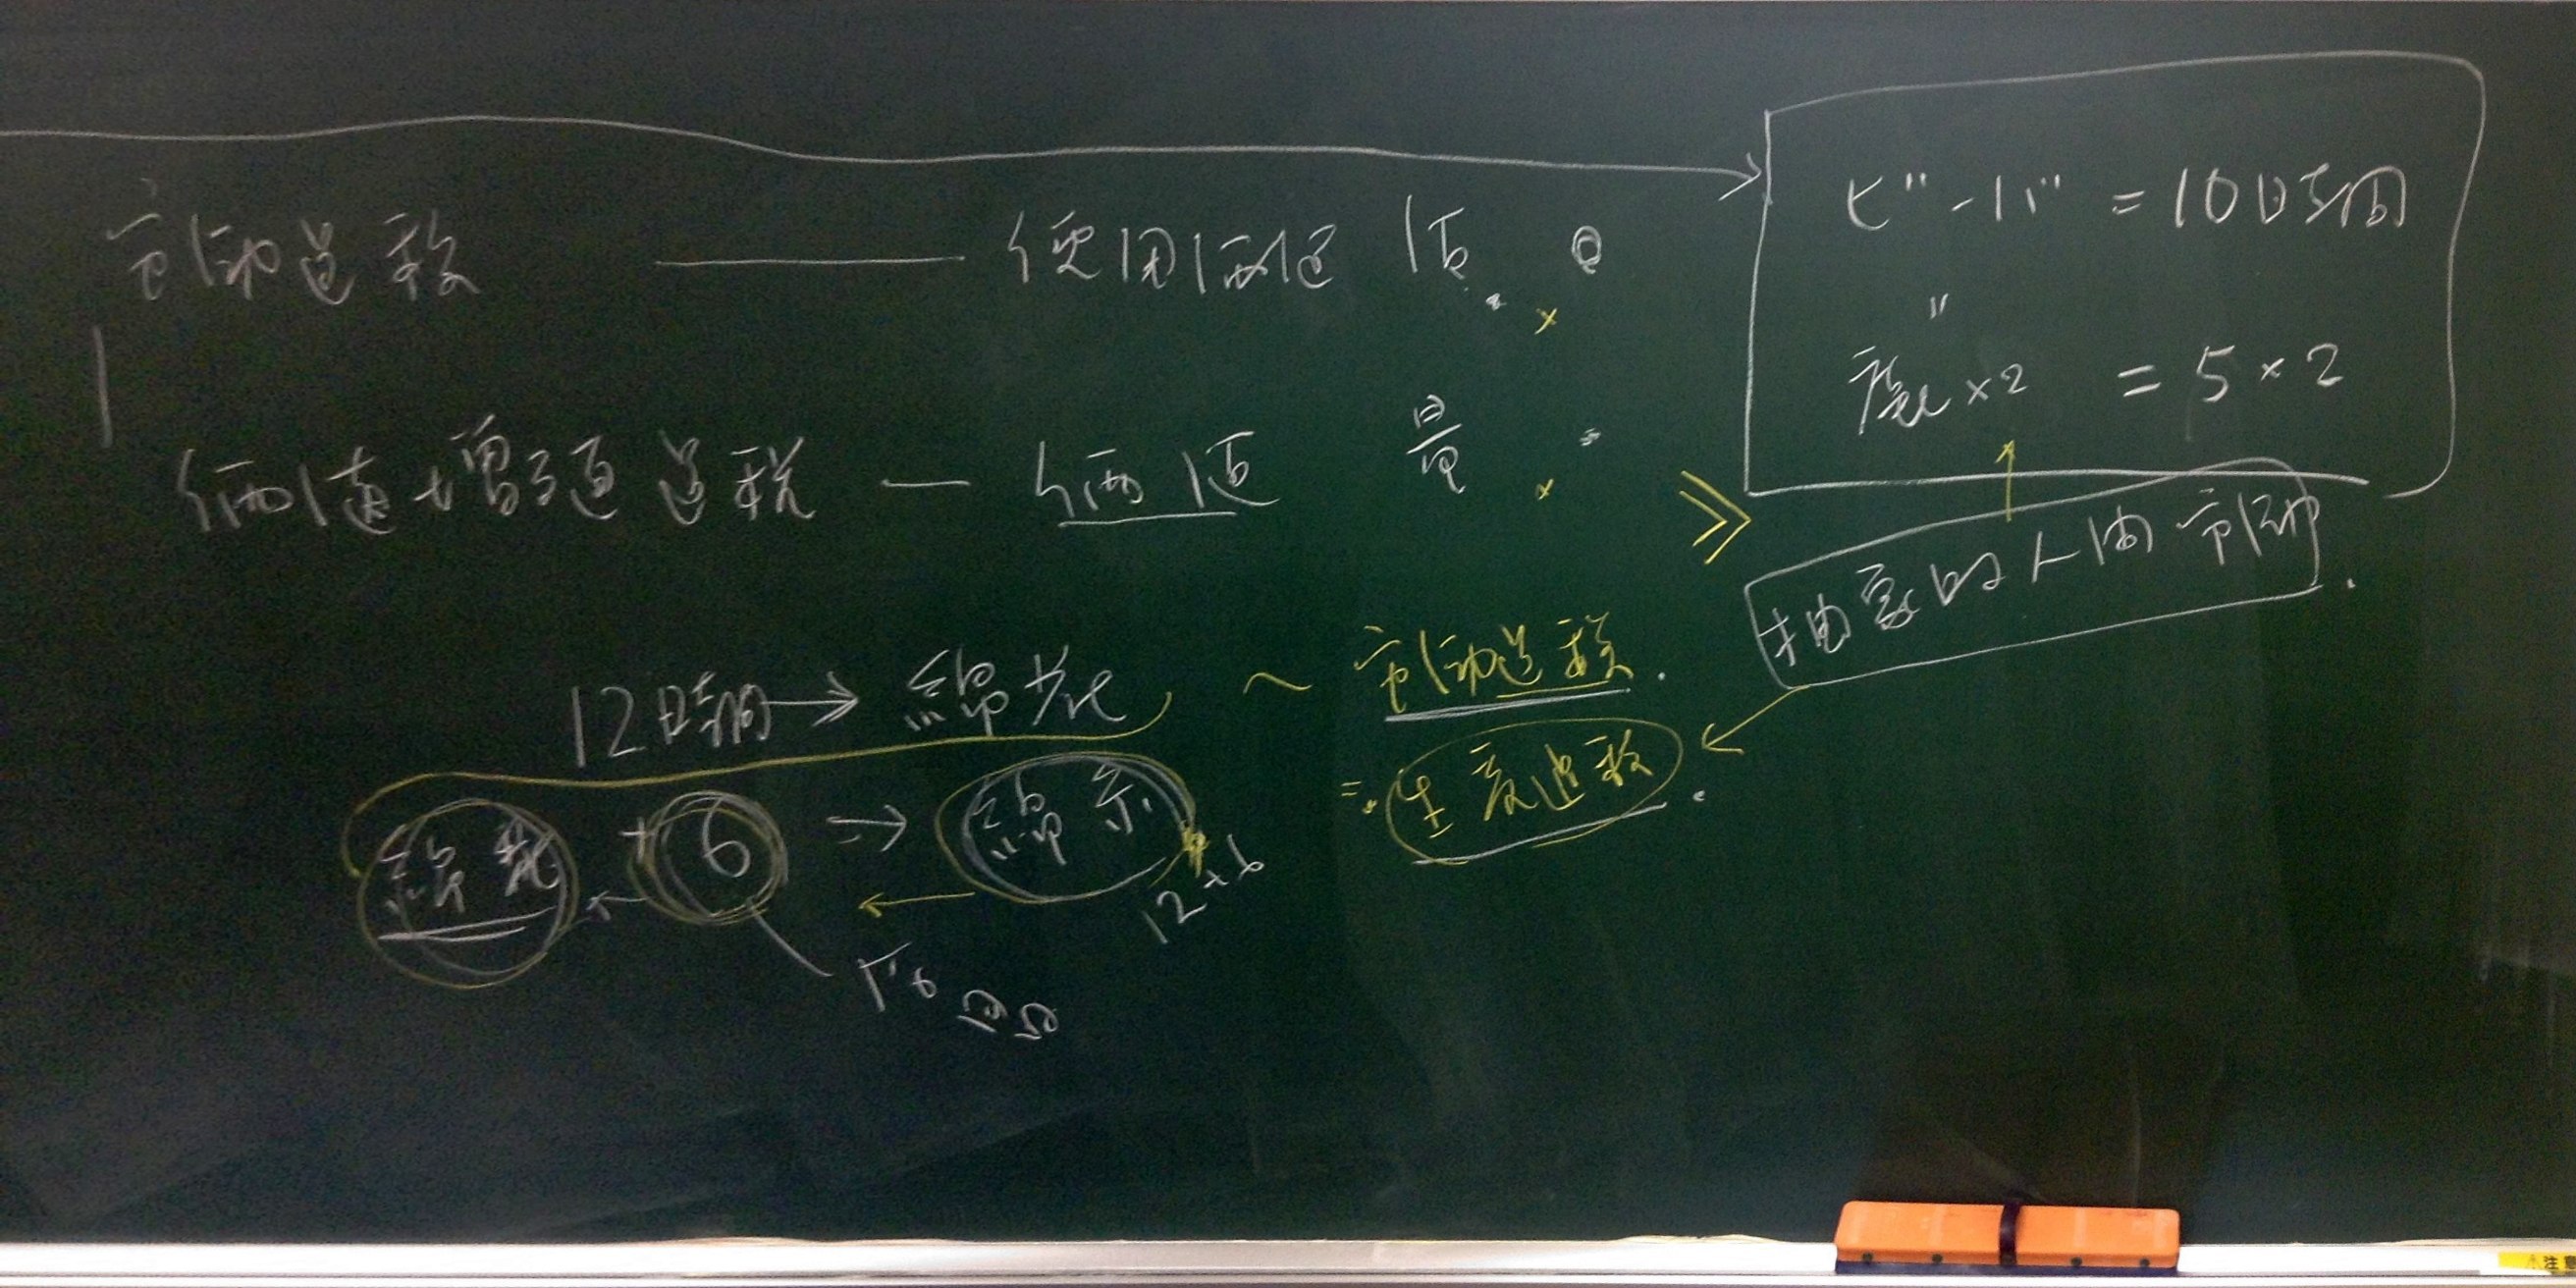 労働過程 — 使用価値 質
価値増殖過程 — 価値 量
ビーバー = 10時間
〃
鹿×2 = 5×2
抽象的人間労働.
12時間 → 綿花 ~ 労働過程.
綿花 + 6 → 綿糸 = 生産過程.
12+6